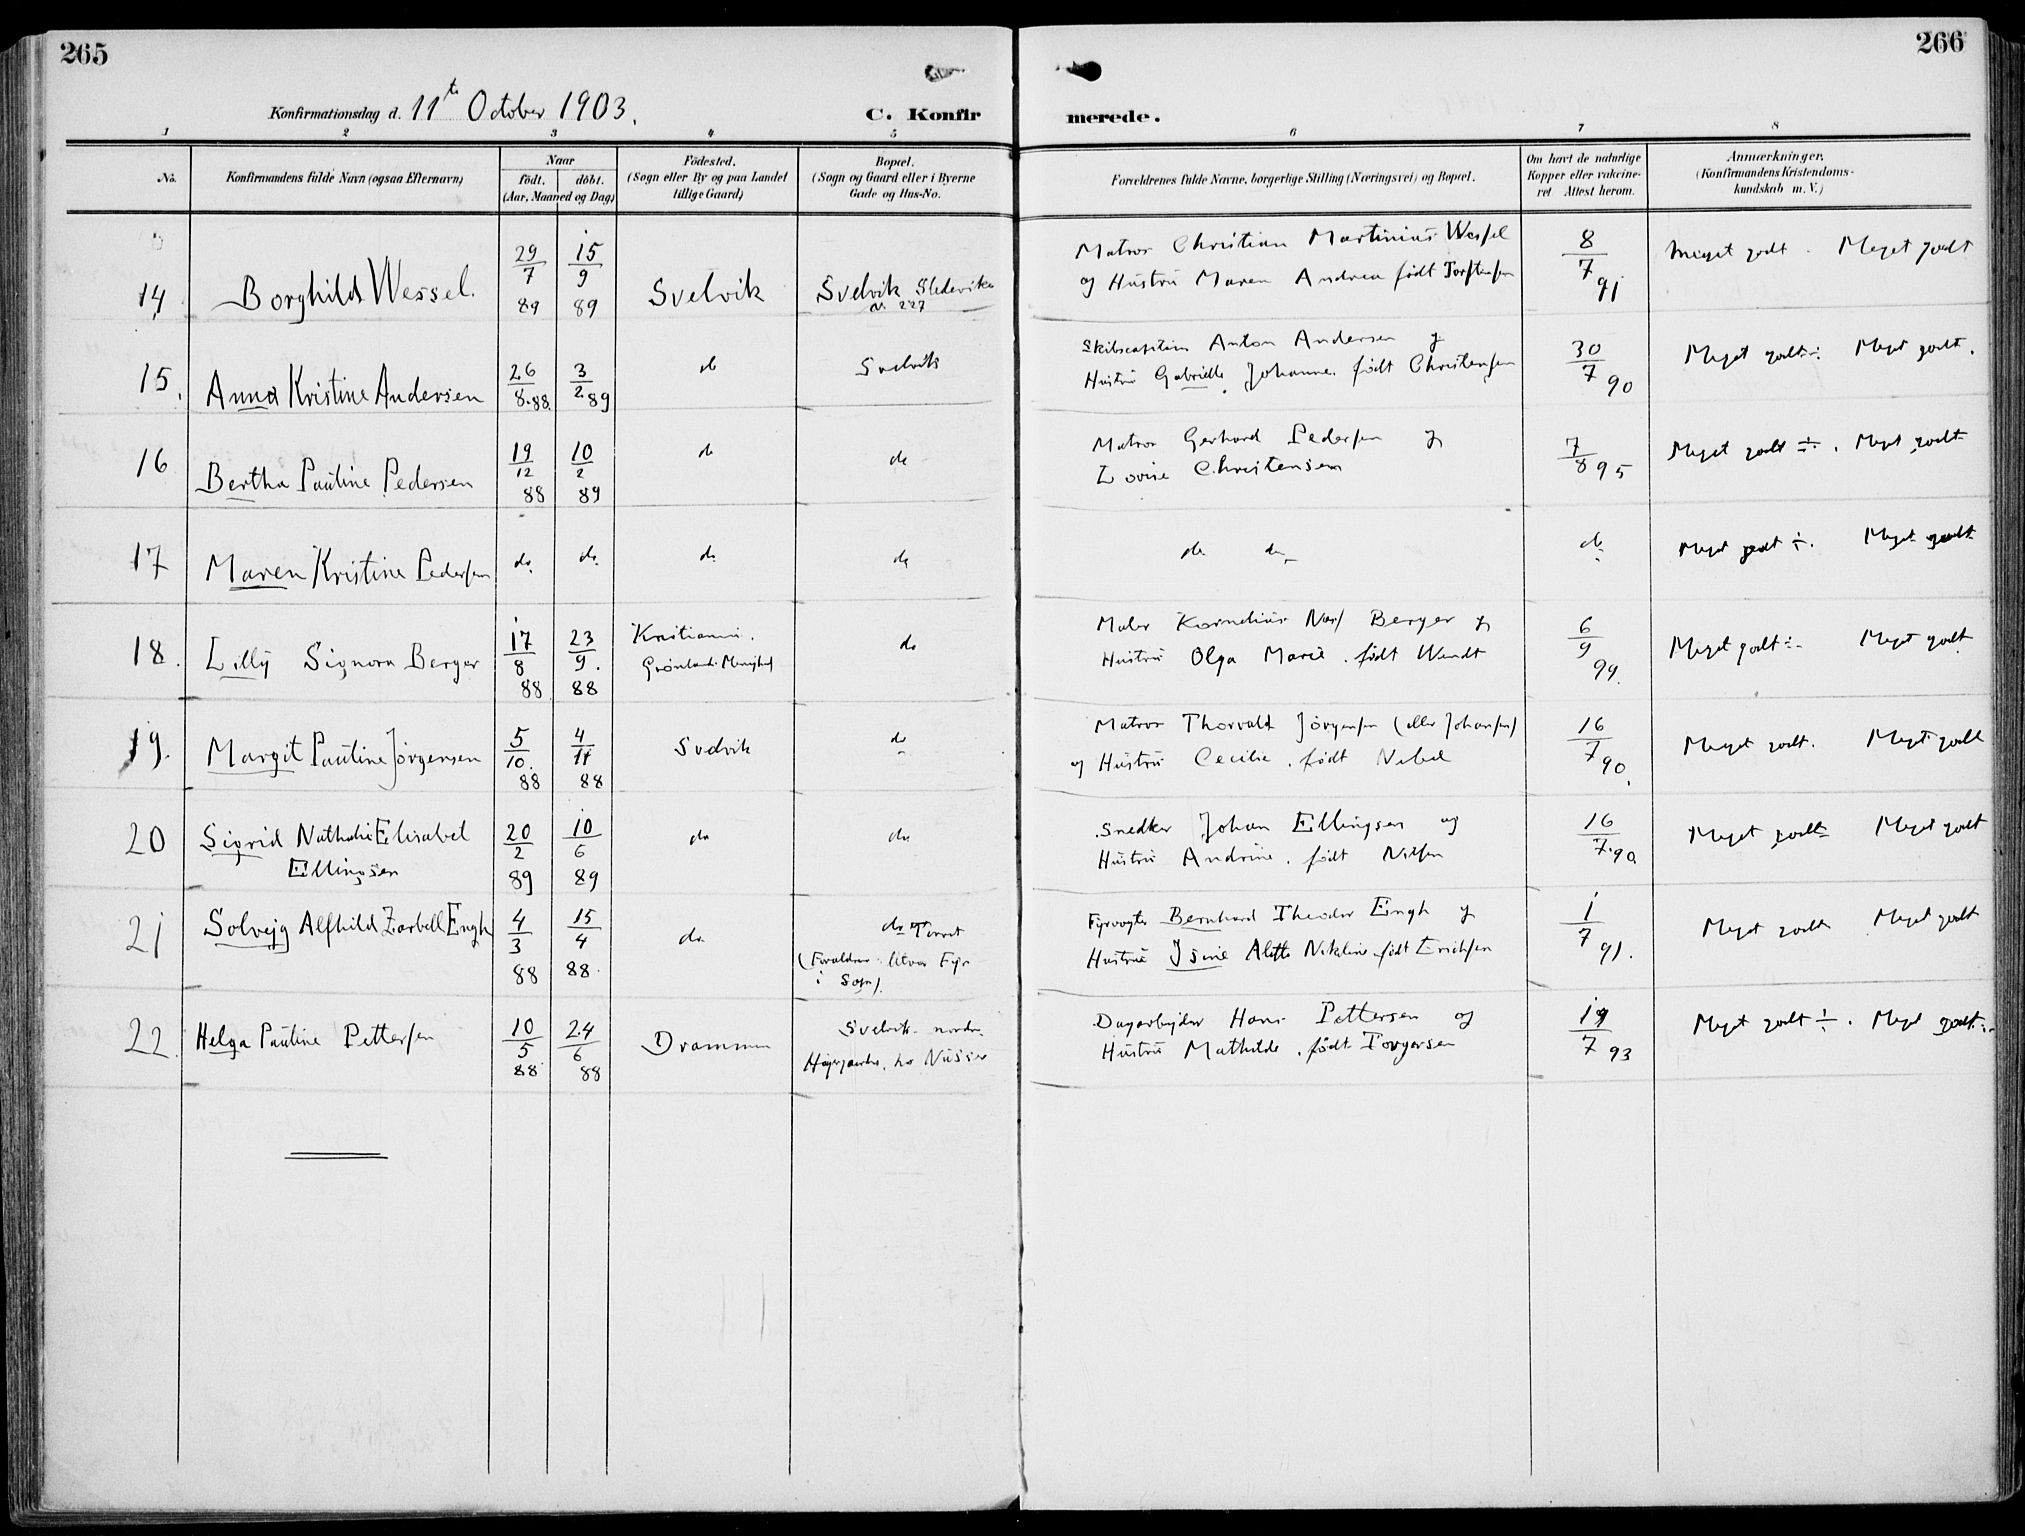 265
266
Konfirmationsdag d. 11te October 1903.
C. Konfirmerede.
1 2 3 4 5 6 7 8
No.
Konfirmandens fulde Navn (ogsaa Efternavn)
Naar
födt. döbt.
(Aar, Maaned og Dag)
Födested.
(Sogn eller By og paa Landet
tillige Gaard)
Bopæl.
(Sogn og Gaard eller i Byerne
Gade og Hus-No.
Forældrenes fulde Navne, borgerlige Stilling (Næringsvei) og Bopæl.
Om havt de naturlige
Kopper eller vakcine-
ret Attest herom.
Anmærkninger.
(Konfirmandens Kristendoms-
kundskab m. V.)
14 Borghild Wessel. 29/7 89 15/9 89 Svelvik Svelvik
No 227
Matros Christian Martinius Wessel
og Hustru Maren Andrea født Torstensen
8/7 91 Meget godt. Meget godt
15. Anna Kristine Andersen 26/8.88. 3/2.89 do Svelvik
Skibscaptein Anton Andersen og
Hustru Gabrielle Johanne født Christensen
30/7 90 Meget godt ÷. Meget godt.
16 Bertha Pauline Pedersen 19/12 88 10/2 89 do do
Matros Gerhard Pedersen og
Lovise Christensen
7/8 95 Meget godt ÷. Meget godt
17 Maren Kristine Pedersen do. do. do. do
do do
do Meget godt ÷. Meget godt
18. Lilly Signora Berger 17/8 88 23/9. 88 Kristiania.
Grönlands Menighed do
Maler Kornelius Berger og
Hustru Olga Marie. født Wendt
6/9 99. Meget godt ÷. Meget godt
19. Margit Pauline Jörgensen 5/10. 88 4/11 88 Svelvik do
Matros Thorvald Jörgensen (eller Johansen)
og Hustru Cecilie. født Nebel
16/7 90. Meget godt. Meget godt
20 Sigrid Nathalie Elisabel
Ellingsen 20/2 89 10/6 89 do do
Snedker Johan Ellingsen og
Hustru Andrine. født Nilsen
16/7.90. Meget godt Meget godt
21 Solvejg Alfhild Zarbell Engh 4/3 88 15/4 88. do. do Tørret
(Forældrene: Utvær Fyr
i Sogn).
Fyrvogter Bernhard Theodor Engh og
Hustrue Jsine Alette Nikoline født Erichsen
1/7 91. Meget godt Meget godt
22. Helga Pauline Pettersen 10/5 88 24/6 88 Drammen Svelvik nordre
hos
Dagarbejder Hans Pettersen og
Hustru Mathilde. født Torgersen
19/7 93 Meget godt ÷. Meget godt ÷